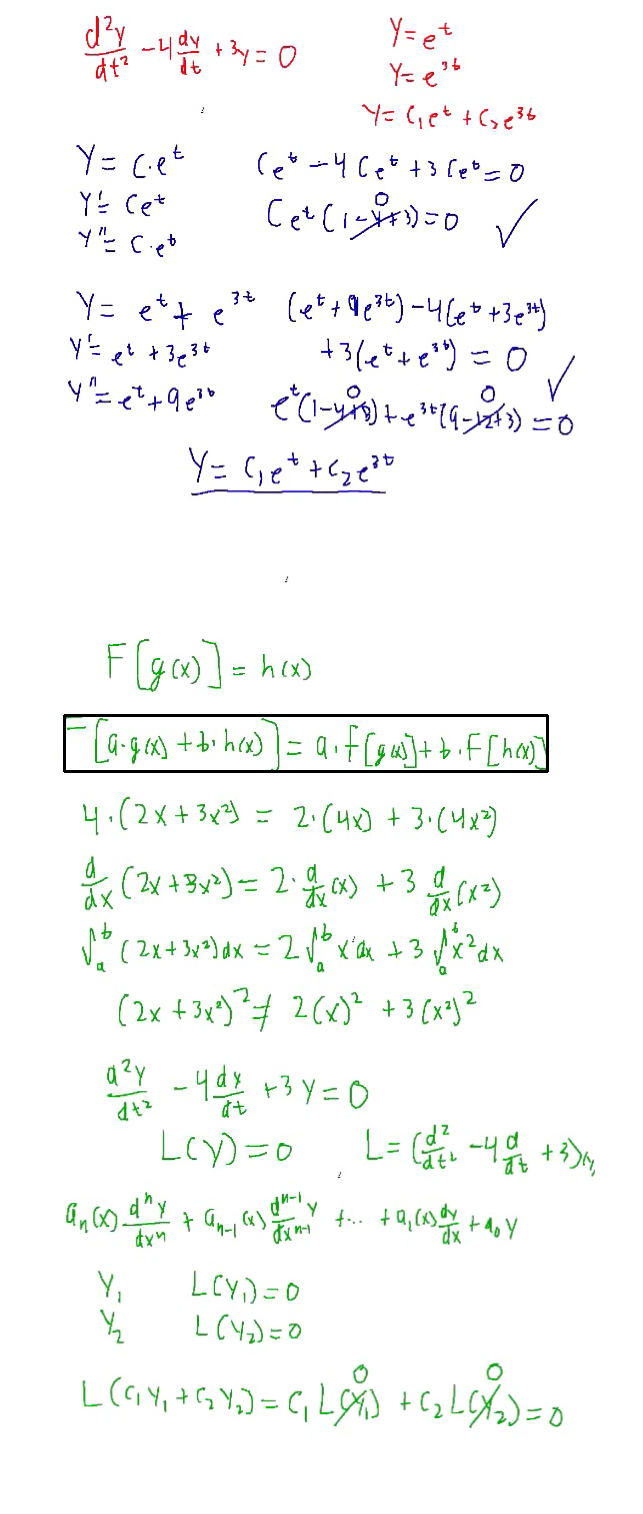 d²y/dt² - 4 dy/dt + 3y = 0
y = e^t
y = e^3t
y = c₁e^t + c₂e^3t
y = c·e^t
y' = ce^t
y'' = c·e^t
ce^t - 4ce^t + 3ce^t = 0
ce^t(1-4+3) = 0 ✓
0
y = e^t + e^3t
y' = e^t + 3e^3t
y'' = e^t + 9e^3t
(e^t + 9e^3t) - 4(e^t + 3e^3t)
+3(e^t + e^3t) = 0 ✓
0 0
e^t(1-4+3) + e^3t(9-12+3) = 0
y = c₁e^t + c₂e^3t
F[g(x)] = h(x)
F[a·g(x) + b·h(x)] = a·F[g(x)] + b·F[h(x)]
4·(2x + 3x²) = 2·(4x) + 3·(4x²)
d/dx (2x + 3x²) = 2·d/dx (x) + 3 d/dx (x²)
∫_a^b (2x + 3x²)dx = 2∫_a^b x dx + 3∫_a^b x² dx
(2x + 3x²)² ≠ 2(x)² + 3(x²)²
d²y/dt² - 4 dy/dt + 3y = 0
L(y) = 0 L = (d²/dt² - 4 d/dt + 3)y
a_n(x) d^n y/dx^n + a_n-1(x) d^n-1 y/dx^n-1 + ... + a₁(x) dy/dx + a₀y
y₁ L(y₁) = 0
y₂ L(y₂) = 0
0 0
L(c₁y₁ + c₂y₂) = c₁L(y₁) + c₂L(y₂) = 0